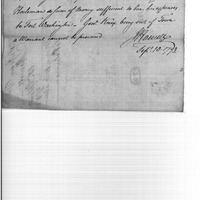 a sum of Money sufficient to bear his expences
to Fort Washington. Genl Knox being out of Town
a Warrant cannot be procured
Sepr. 10. 1792